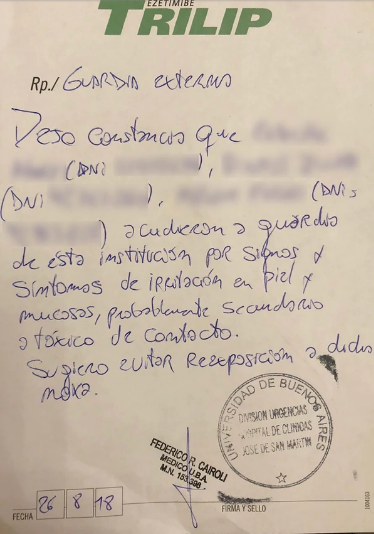 EZETIMIBE
TRILIP
Rp./ Guardia externa
Dejo constancia que
(DNI ),
(DNI ), (DNI:
) acudieron a guardia
de esta institución por signos y
síntomas de irritación en piel y
mucosas, probablemente secundario
a tóxico de contacto.
Sugiero evitar reexposición a dicha
noxa.
UNIVERSIDAD DE BUENOS AIRES
DIVISION URGENCIAS
HOSPITAL DE CLINICAS
JOSE DE SAN MARTIN
FEDERICO R. CAIROLI
MEDICO U.B.A.
M.N. 153.388
FECHA 26 8 18
FIRMA Y SELLO